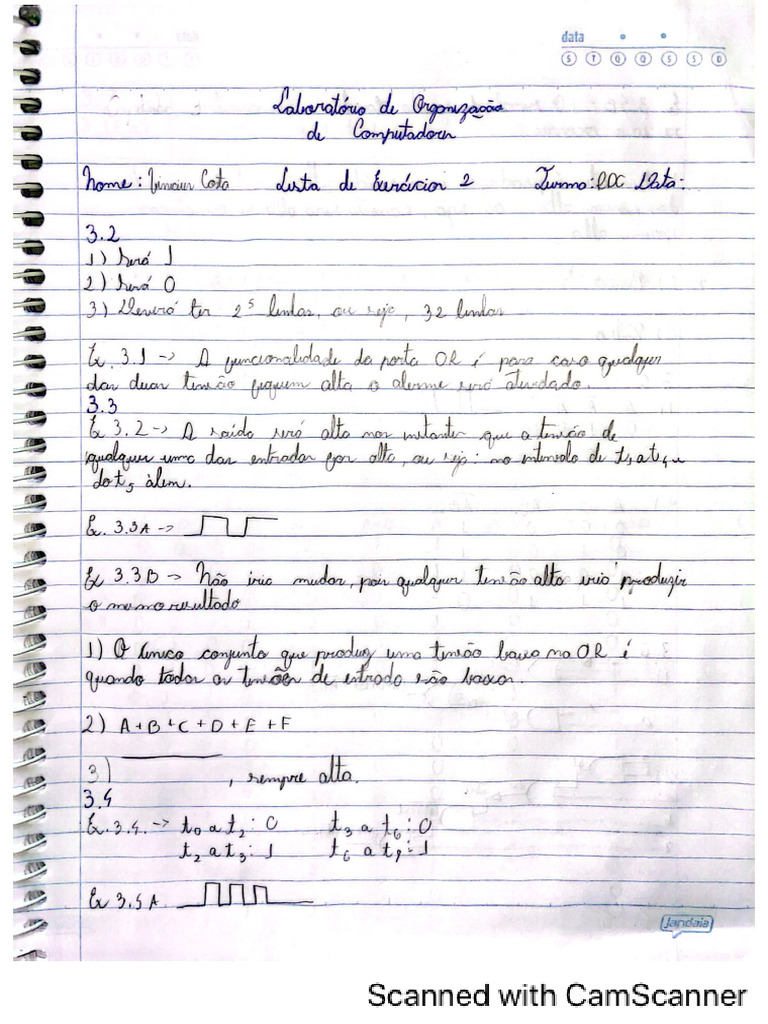 data
S T Q Q S S D
Laboratório de Organização
de Computadores
Nome: Vinicius Cota Lista de Exercícios 2 Turma: Data:
3.2
1) Será 1
2) Será 0
3) Deverá ter 2⁵ linhas, ou seja, 32 linhas
Ex. 3.1 -> A funcionalidade da porta OR é para caso qualquer
das duas tensão fiquem alta o alarme será
3.3
Ex 3.2 -> A saída será alta nos instantes que a tensão de
qualquer uma das entradas for alta, ou seja: no intervalo de
do t5 além.
Ex. 3.3A ->
Ex 3.3B -> Não iria mudar, pois qualquer tensão alta iria produzir
o mesmo resultado
1) O único conjunto que produz uma tensão baixa na OR é
quando todas as tensões de entrada são baixas.
2) A+B+C+D+E+F
3) , sempre alta.
3.4
Ex. 3.4. -> t0 a t2: 0 t3 a t6: 0
t2 a t3: 1 t6 a t9: 1
Ex 3.5A
jandaia
Scanned with CamScanner